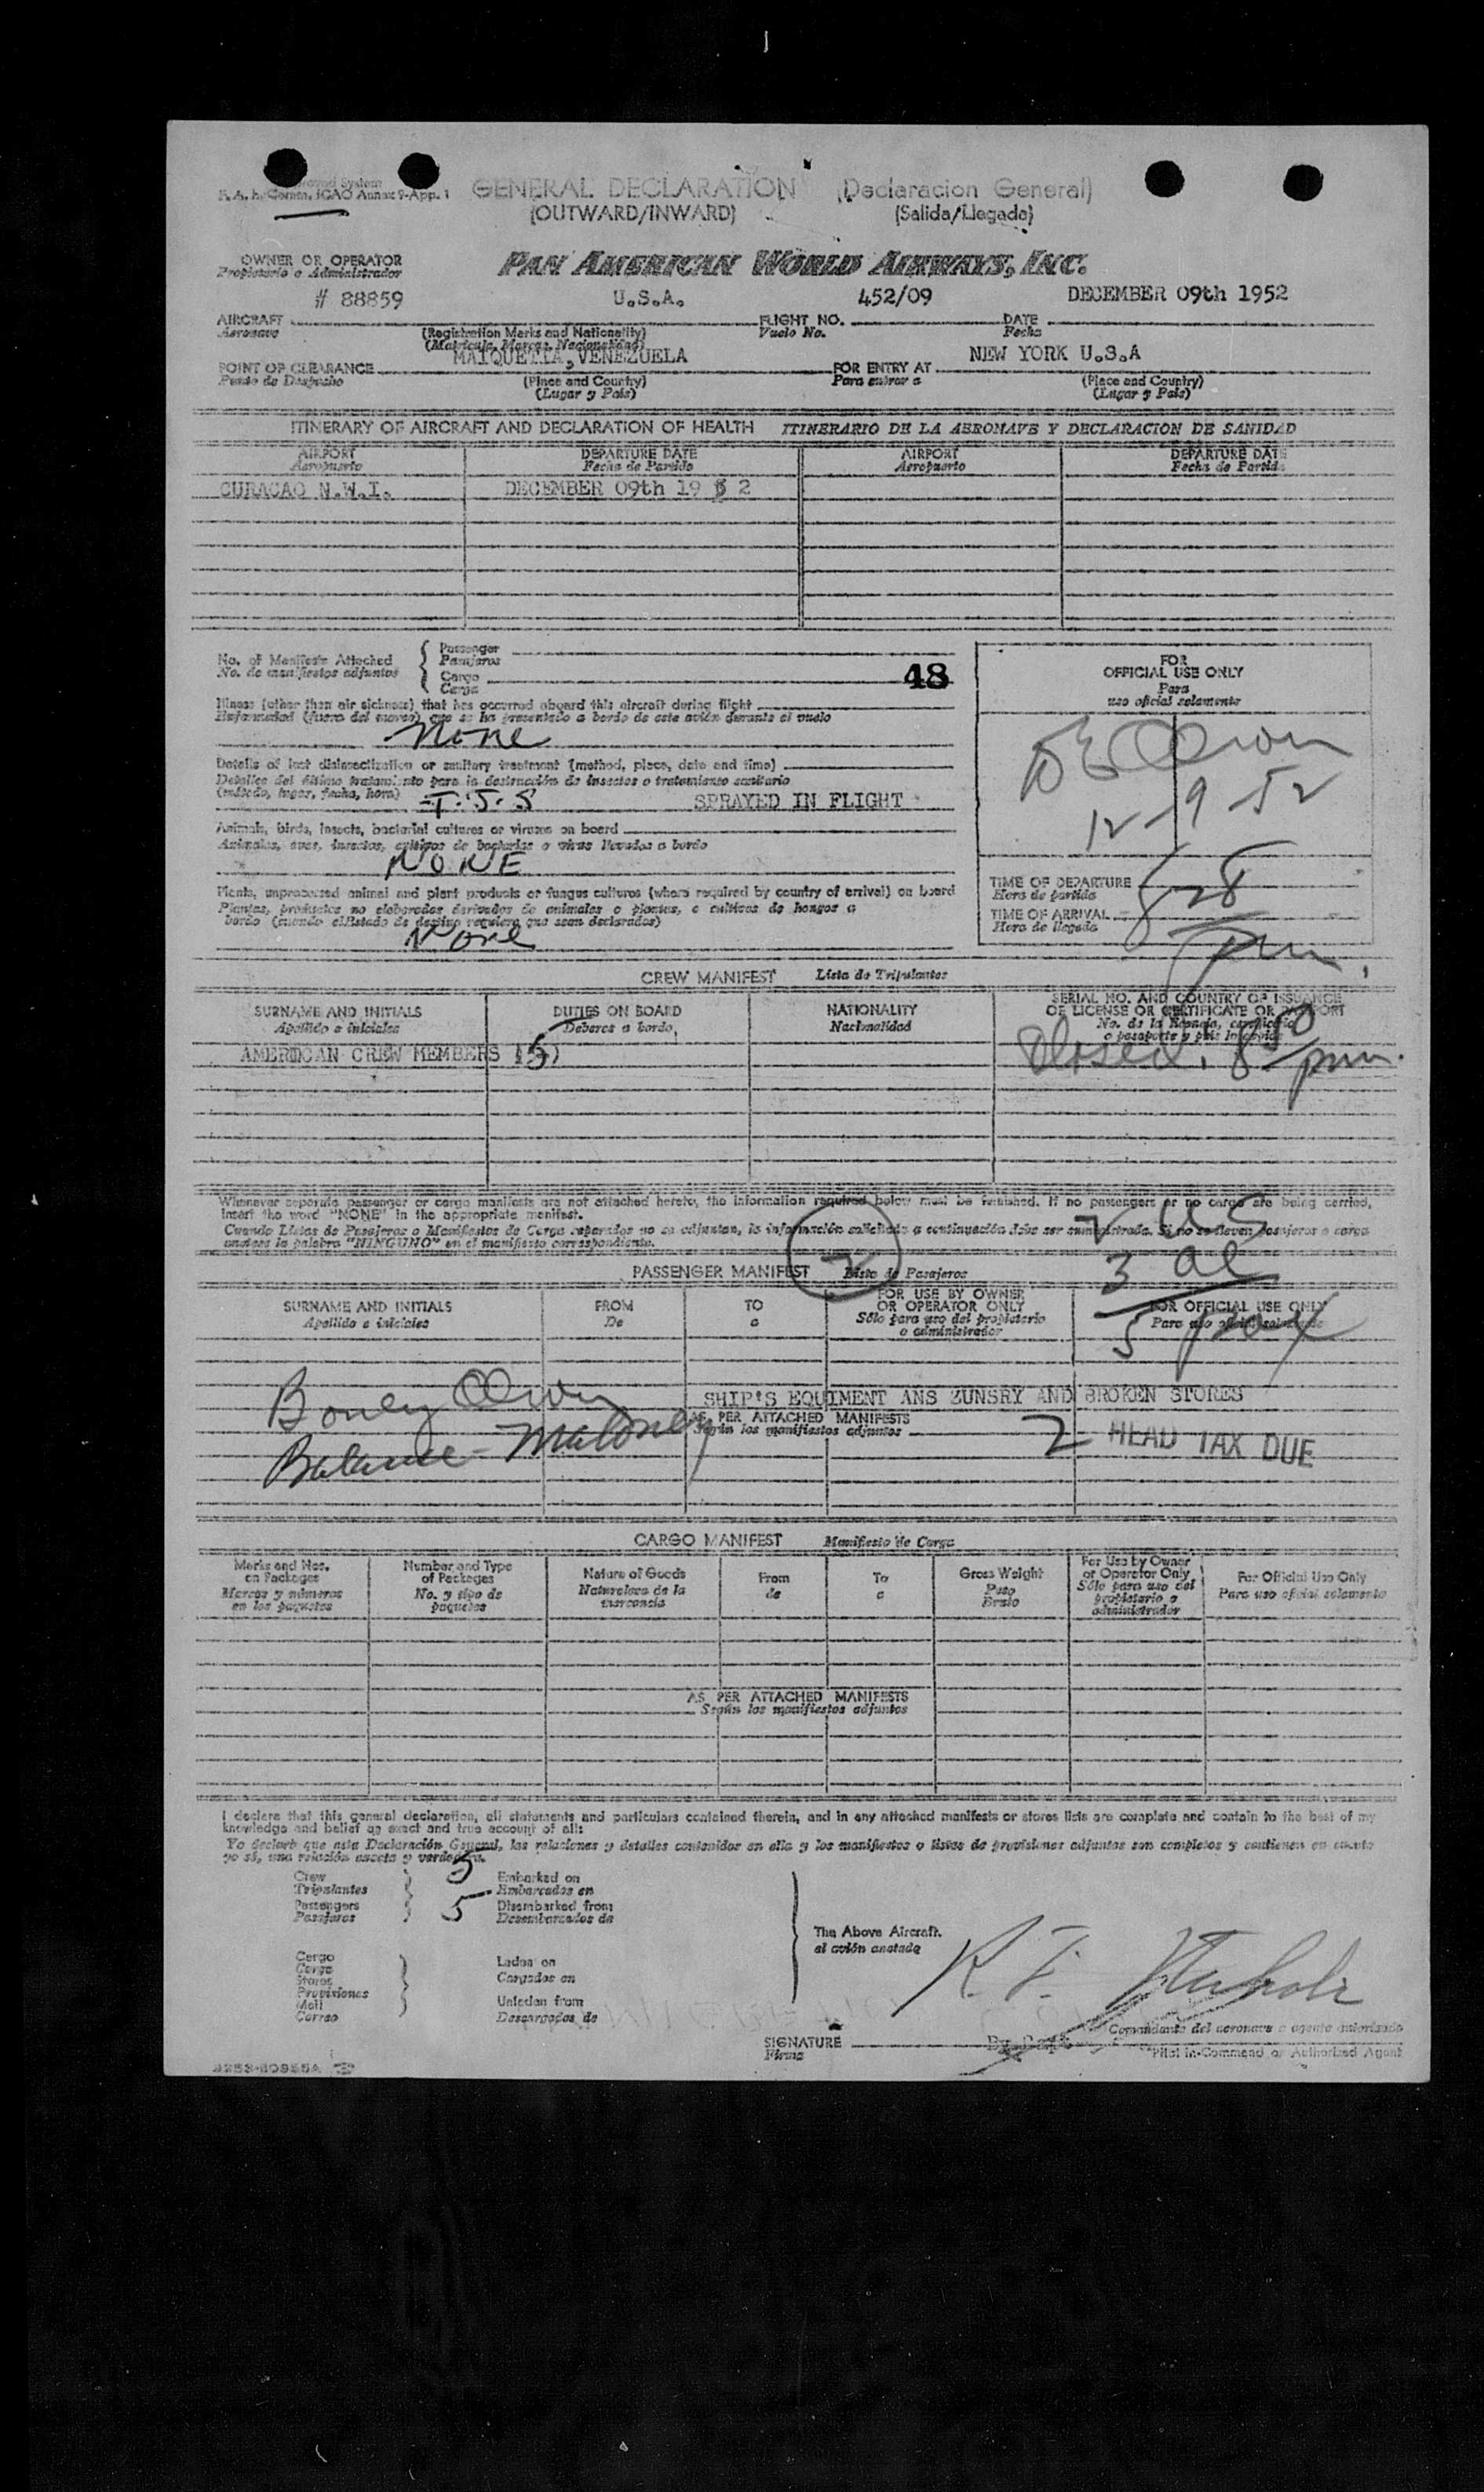 F. A. L. Comm. ICAO Annex 9-App. 1
GENERAL DECLARATION (Declaracion General)
(OUTWARD/INWARD) (Salida/Llegada)
OWNER OR OPERATOR
Propietario o Administrador
PAN AMERICAN WORLD AIRWAYS, INC.
# 88859 U.S.A. 452/09 DECEMBER 09th 1952
AIRCRAFT FLIGHT NO. DATE
Aeronave (Registration Marks and Nationality) Vuelo No. Fecha
(Matricula, Marcas, Nacionalidad)
MAIQUETIA, VENEZUELA NEW YORK U.S.A
POINT OF CLEARANCE FOR ENTRY AT
Punto de Despacho (Place and Country) Para entrar a (Place and Country)
(Lugar y País) (Lugar y País)
ITINERARY OF AIRCRAFT AND DECLARATION OF HEALTH ITINERARIO DE LA AERONAVE Y DECLARACION DE SANIDAD
AIRPORT DEPARTURE DATE AIRPORT DEPARTURE DATE
Aeropuerto Fecha de Partida Aeropuerto Fecha de Partida
CURACAO N.W.I. DECEMBER 09th 19 5 2
No. of Manifests Attached
No. de manifiestos adjuntos
Passenger
Pasajeros
Cargo
Carga
48
Illness (other than air sickness) that has occurred aboard this aircraft during flight
Enfermedad (fuera del mareo) que se ha presentado a bordo de este avión durante el vuelo
None
Details of last disinsectization or sanitary treatment (method, place, date and time)
Detalles del último tratamiento para la destrucción de insectos o tratamiento sanitario
(método, lugar, fecha, hora) T.S.S SPRAYED IN FLIGHT
Animals, birds, insects, bacterial cultures or viruses on board
Animales, aves, insectos, cultivos de bacterias o virus llevados a bordo
NONE
Plants, unprocessed animal and plant products or fungus cultures (where required by country of arrival) on board
Plantas, productos no elaborados derivados de animales o plantas, o cultivos de hongos a
bordo (cuando el Estado de destino requiera que sean declarados)
None
FOR
OFFICIAL USE ONLY
Para
uso oficial solamente
12-9-52
TIME OF DEPARTURE
Hora de partida
TIME OF ARRIVAL
Hora de llegada
828
pm.
CREW MANIFEST Lista de Tripulantes
SURNAME AND INITIALS DUTIES ON BOARD NATIONALITY SERIAL NO. AND COUNTRY OF ISSUANCE
OF LICENSE OR CERTIFICATE OR PASSPORT
Apellido e iniciales Deberes a bordo Nacionalidad No. de la licencia, certificado
o pasaporte y país
AMERICAN CREW MEMBERS (5)
Closed. 850 pm.
Whenever separate passenger or cargo manifests are not attached hereto, the information required below must be furnished. If no passengers or no cargo are being carried,
insert the word "NONE" in the appropriate manifest.
Cuando Listas de Pasajeros o Manifiestos de Carga separados no se adjuntan, la información solicitada a continuación debe ser suministrada. Si no se llevan pasajeros o carga
anótese la palabra "NINGUNO" en el manifiesto correspondiente.
2 US
3 al
5 pax
2
PASSENGER MANIFEST Lista de Pasajeros
SURNAME AND INITIALS FROM TO FOR USE BY OWNER
OR OPERATOR ONLY FOR OFFICIAL USE ONLY
Apellido e iniciales De a Sólo para uso del propietario
o administrador Para uso oficial solamente
SHIP'S EQUIMENT ANS ZUNSRY AND BROKEN STORES
AS PER ATTACHED MANIFESTS
Según los manifiestos adjuntos
2 HEAD TAX DUE
Balance - Maloney
CARGO MANIFEST Manifiesto de Carga
Marks and Nos.
on Packages
Marcas y números
en los paquetes
Number and Type
of Packages
No. y tipo de
paquetes
Nature of Goods
Naturaleza de la
mercancía
From
de
To
a
Gross Weight
Peso
Bruto
For Use by Owner
or Operator Only
Sólo para uso del
propietario o
administrador
For Official Use Only
Para uso oficial solamente
AS PER ATTACHED MANIFESTS
Según los manifiestos adjuntos
I declare that this general declaration, all statements and particulars contained therein, and in any attached manifests or stores lists are complete and contain to the best of my
knowledge and belief an exact and true account of all:
Yo declaro que esta Declaración General, las relaciones y detalles contenidos en ella y los manifiestos o listas de provisiones adjuntas son completos y contienen en cuanto
yo sé, una relación exacta y verdadera.
Crew 5 Embarked on
Tripulantes Embarcados en
Passengers 5 Disembarked from
Pasajeros Desembarcados de
Cargo
Carga
Stores
Provisiones
Mail
Correo
Laden on
Cargados en
Unladen from
Descargados de
The Above Aircraft.
al avión anotado
SIGNATURE
Firma
Comandante del aeronave o agente autorizado
Pilot in-Command or Authorized Agent